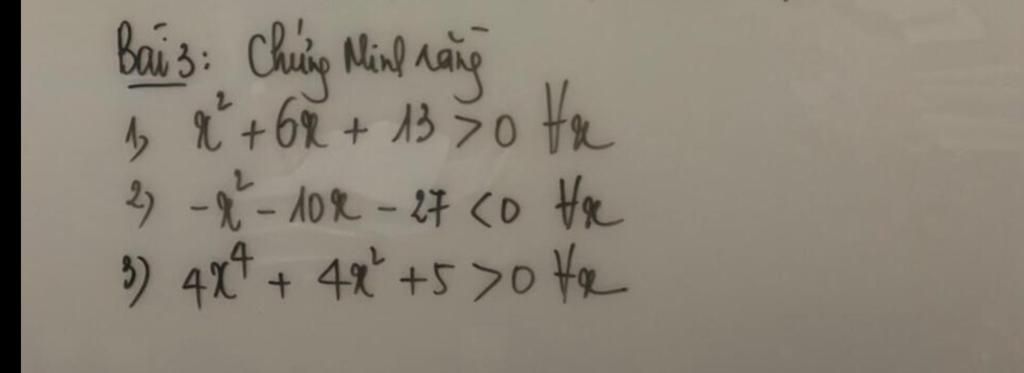 Bài 3: Chứng Minh rằng
1) x² + 6x + 13 > 0 ∀x
2) -x² - 10x - 27 < 0 ∀x
3) 4x⁴ + 4x² + 5 > 0 ∀x